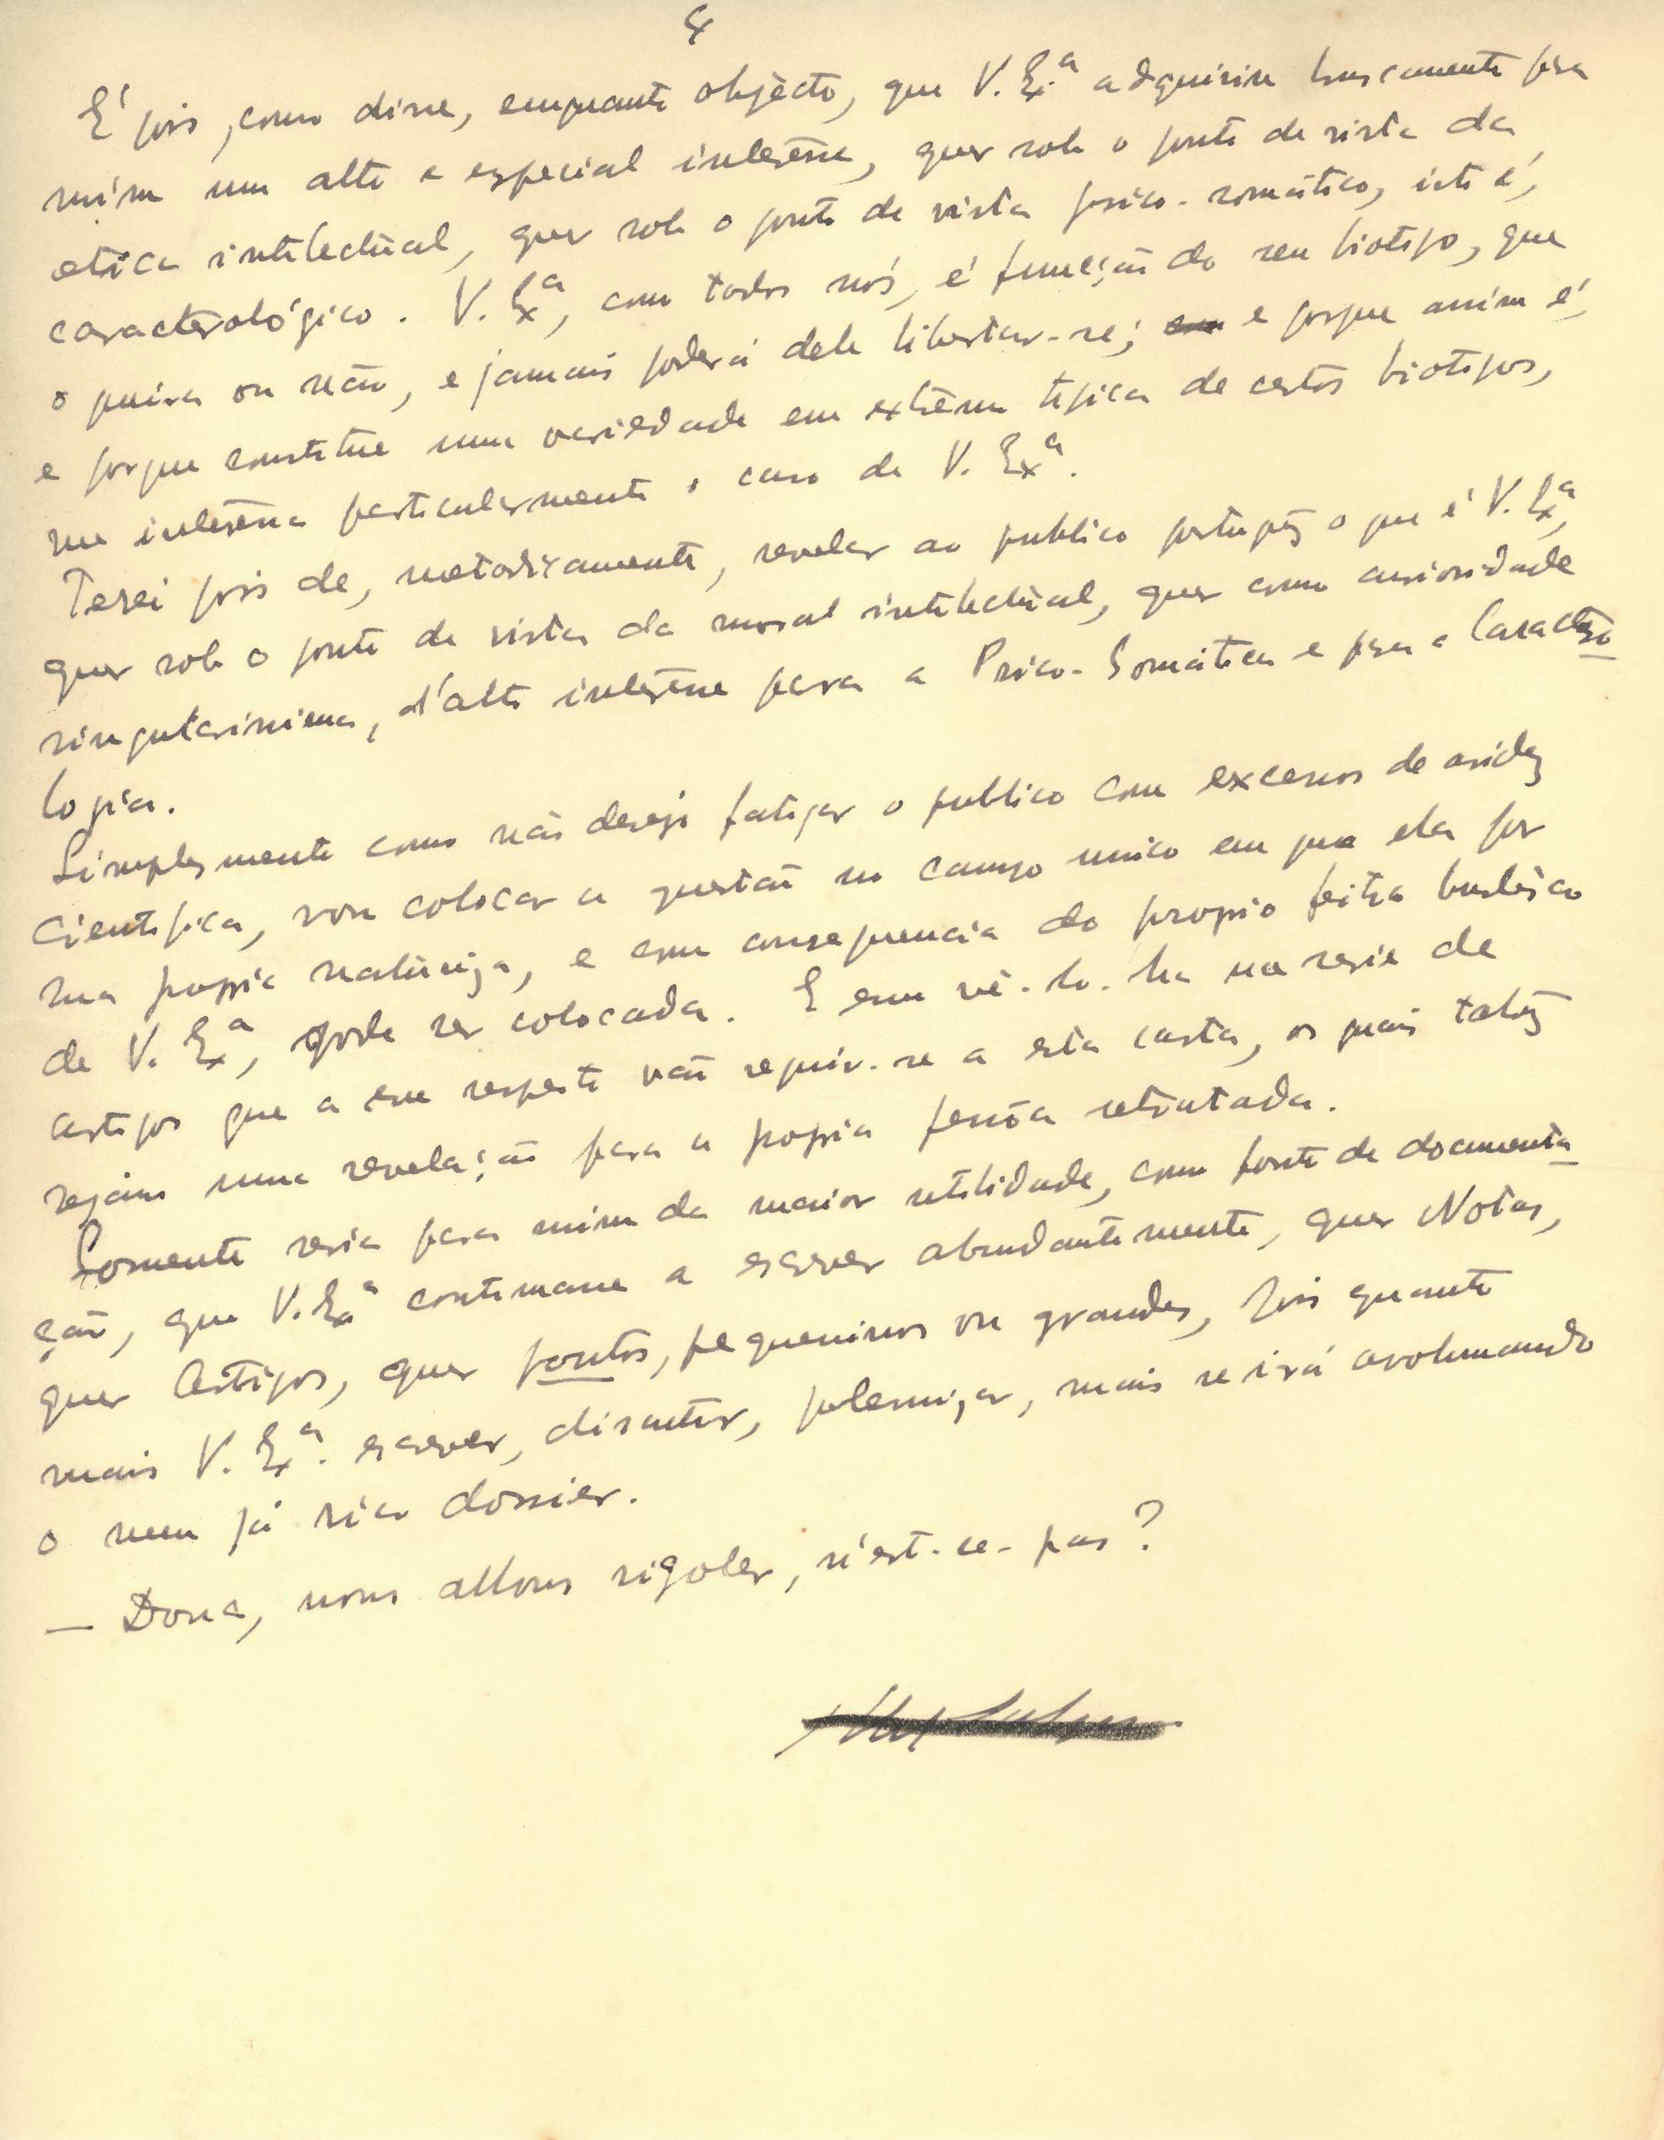 É pois, como disse, emquanto objècto, que V. Ex.ª adquiriu bruscamente para
mim um alto e especial interêsse, quer sob o ponto de vista da
etica intelectual, quer sob o ponto de vista psico-somático, isto é,
caracterológico. V. Exª, como todos nós, é função do seu biotipo, que
o queira ou não, e jamais poderá dele libertar-se; e porque assim é,
e porque constitue uma variedade em extrêmo tipica de certos biotipos,
me interêssa particularmente o caso de V. Exª.
Terei pois de, metodicamente, revelar ao publico portuguez o que é V. Exª,
quer sob o ponto de vista da moral intelectual, quer como curiosidade
singularissima, d'alto interêsse para a Psico-Somática e para a Caractero
logia.
Simplesmente como não desejo fatigar o publico com excessos de aridez
cientifica, vou colocar a questão no campo unico em que ela por
sua propria naturêza, e como consequencia do proprio feitio burlêsco
de V. Exª, pode ser colocada. E como vê-lo-ha na serie de
artigos que a esse respeito vão seguir-se a esta carta, os quais talvez
sejam uma revelação para a propria pessôa retratada.
Somente seria para mim da maior utilidade, como fonte de documenta
ção, que V. Exª continuasse a escrever abundantemente, quer Notas,
quer Artigos, quer pontos, pequeninos ou grandes, pois quanto
mais V. Exª. escrever, discutir, polemiçar, mais se irá avolumando
o meu já rico dossier.
— Donc, nous allons rigoler, n'est-ce-pas?